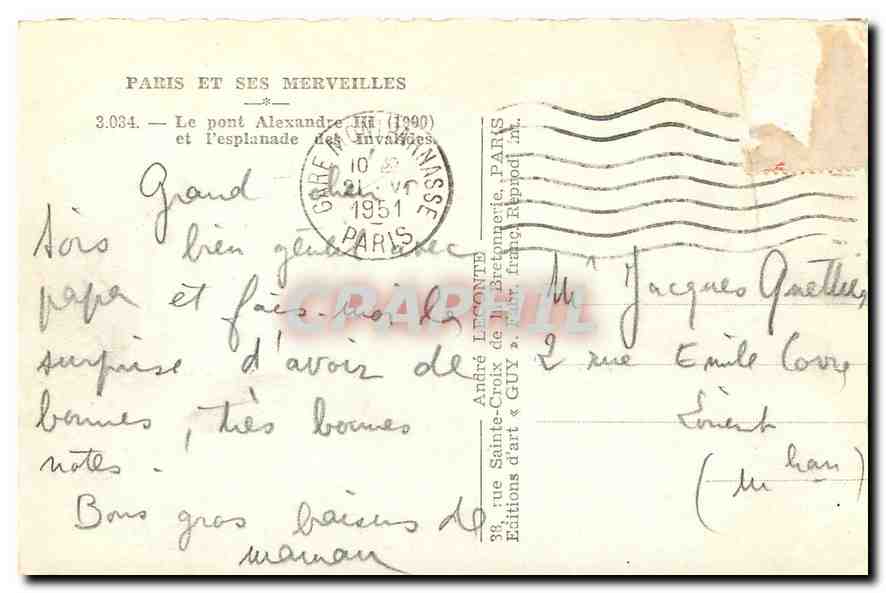 PARIS ET SES MERVEILLES
3.034. — Le pont Alexandre III (1900)
et l'esplanade des Invalides.
GARE MONTPARNASSE
10
21 VI
1951
PARIS
Grand chéri
Sois bien gentil avec
papa et fais-moi la
surprise d'avoir de
bonnes, très bonnes
notes.
Bons gros baisers de
maman
André LECONTE
38, rue Sainte-Croix de la Bretonnerie, PARIS
Editions d'art « GUY ». Fabr. franç. Reprod. int.
Mr Jacques
2 rue Emile
Lorient
(M han)
CPAPHIL